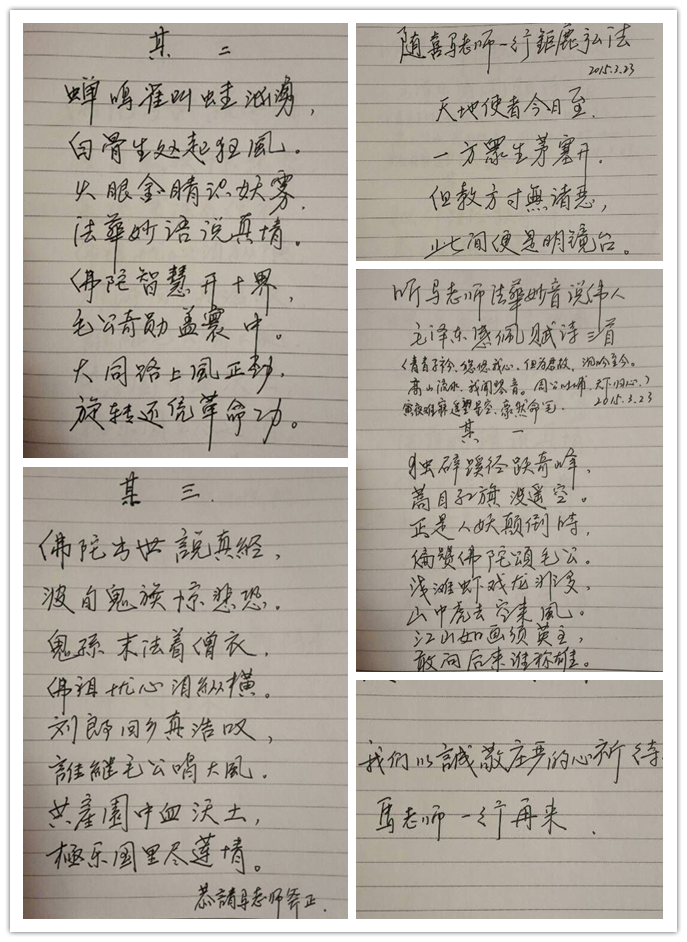 随喜马老师一行钜鹿弘法
2015.3.23
天地使者今日至.
一方眾生茅塞开.
但教方寸無诸恶,
此间便是明镜台。
听马老师法華妙音说伟人
毛泽东感佩赋诗三首
(青青子衿、悠悠我心、但为君故、沉吟至今。
高山流水、我闻
音。周公吐哺、天下归心。)
遥望星空、
命笔. 2015.3.23
其 一
独辟蹊径跃奇峰,
蒿目红旗没遥空。
正是人妖颠倒时,
偏赞佛陀頌毛公。
浅滩虾戏龙
山中虎去
来風。
江山如画须英主,
敢问后来谁称雄。
其 二
蝉鸣雀叫蛙汹湧,
白骨生处起狂風。
火眼金睛识妖雾,
法華妙语说真情。
佛陀智慧开十界,
毛公奇勋盖寰中。
大同路上風正劲,
旋转还凭革命功。
其 三.
佛陀出世說真經,
波旬鬼族惊悲恐.
鬼孫末法着僧衣,
佛祖忧心泪纵横。
刘郎回乡真浩叹,
誰継毛公唱大風.
共産園中血沃土,
極乐国里尽蓮情。
恭請马老师斧正.
我们以誠敬庄严的心祈待
馬老师一行再来.